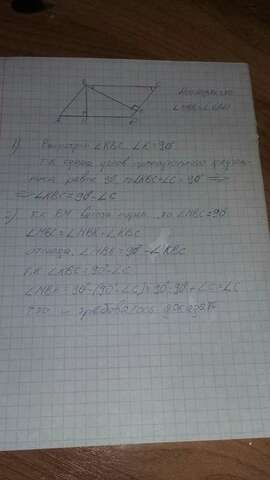 Доказать:
∠MBK=∠C
1) Рассмотр. ∠KBC. ∠K=90°
т.к сумма углов прямоугольного
равна 90°, то ∠KBC+∠C=90° ⇒
⇒ ∠KBC=90°-∠C
2) т.к BM высота то ∠MBC=90°
∠MBC=∠MBK+∠KBC
отсюда, ∠MBK=90°-∠KBC
т.к ∠KBC=90°-∠C
∠MBK=90°-(90°-∠C)=90°-90°+∠C=∠C
что и требовалось доказать